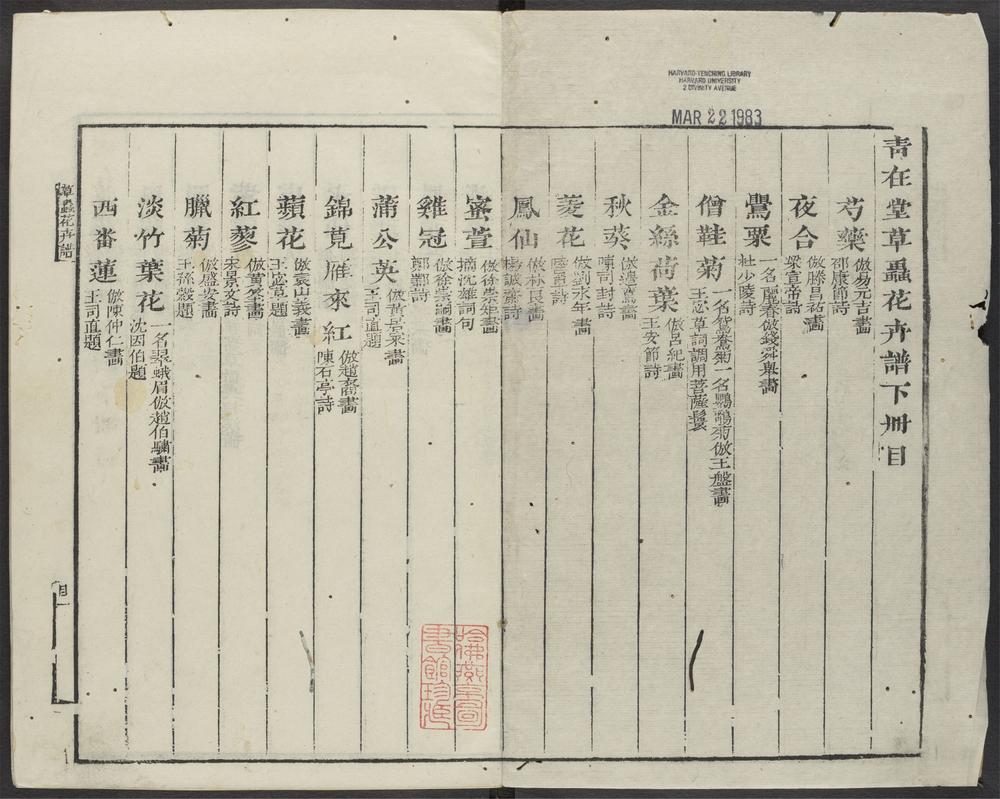 HARVARD-YENCHING LIBRARY
HARVARD UNIVERSITY
2 DIVINITY AVENUE
MAR 22 1983
青在堂草蟲花卉譜下冊目
芍藥 倣易元吉畫 邵康節詩
夜合 倣滕昌祐畫 梁宣帝詩
鸎粟 一名麗春倣錢舜舉畫 杜少陵詩
僧鞋菊 一名鴛鴦菊一名鸚鵡菊倣王盤畫 王忍草詞調用菩薩鬘
金絲荷葉 倣呂紀畫 王安節詩
秋葵 倣邊鸞畫 陳司封詩
菱花 倣劉永年畫
鳳仙 倣林良畫 楊誠齋詩
蜜萱 倣徐崇矩畫 摘沈雄詞句
雞冠 倣徐崇嗣畫 鄭鄤詩
蒲公英 倣黃居寀畫 王司直題
錦莧雁來紅 倣趙裔畫 陳石亭詩
蘋花 倣裒山義畫 王宓草題
紅蓼 倣黃筌畫 宋景文詩
臘菊 倣盛安畫 王孫縠題
淡竹葉花 一名翠蛾眉倣趙伯驌畫 沈因伯題
西番蓮 倣陳仲仁畫 王司直題
草蟲花卉譜
目一
哈佛燕京圖書館珍藏